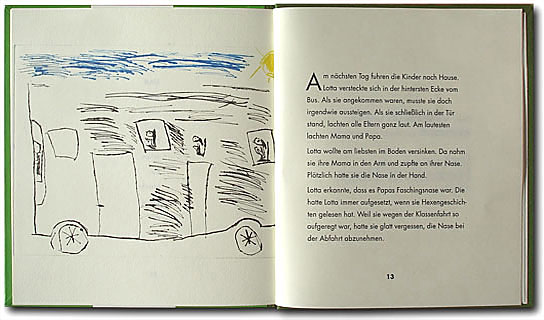 Am nächsten Tag fuhren die Kinder nach Hause.
Lotta versteckte sich in der hintersten Ecke vom
Bus. Als sie angekommen waren, musste sie doch
irgendwie aussteigen. Als sie schließlich in der Tür
stand, lachten alle Eltern ganz laut. Am lautesten
lachten Mama und Papa.
Lotta wollte am liebsten im Boden versinken. Da nahm
sie ihre Mama in den Arm und zupfte an ihrer Nase.
Plötzlich hatte sie die Nase in der Hand.
Lotta erkannte, dass es Papas Faschingsnase war. Die
hatte Lotta immer aufgesetzt, wenn sie Hexengeschich-
ten gelesen hat. Weil sie wegen der Klassenfahrt so
aufgeregt war, hatte sie glatt vergessen, die Nase bei
der Abfahrt abzunehmen.
13